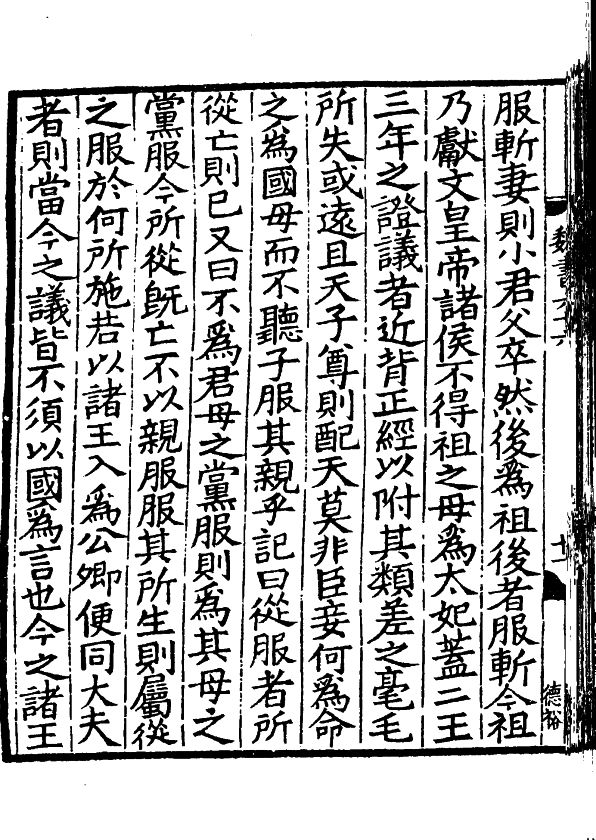 服斬妻則小君父卒然後爲祖後者服斬今祖
乃獻文皇帝諸侯不得祖之母爲太妃蓋二王
三年之證議者近背正經以附其類差之毫毛
所失或遠且天子尊則配天莫非臣妾何爲命
之爲國母而不聽子服其親乎記曰從服者所
從亡則已又曰不爲君母之黨服則爲其母之
黨服今所從旣亡不以親服服其所生則屬從
之服於何所施若以諸王入爲公卿便同大夫
者則當今之議皆不須以國爲言也今之諸王
魏書
德裕